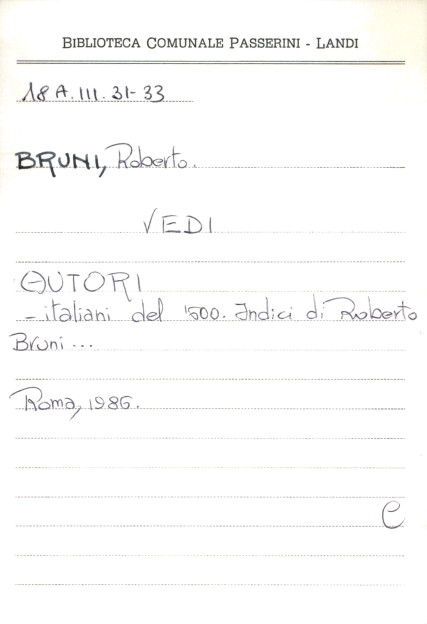 BIBLIOTECA COMUNALE PASSERINI - LANDI
18 A. III. 31-33
BRUNI, Roberto.
VEDI
AUTORI
- italiani del '500. Indici di Roberto
Bruni ...
Roma, 1986.
C